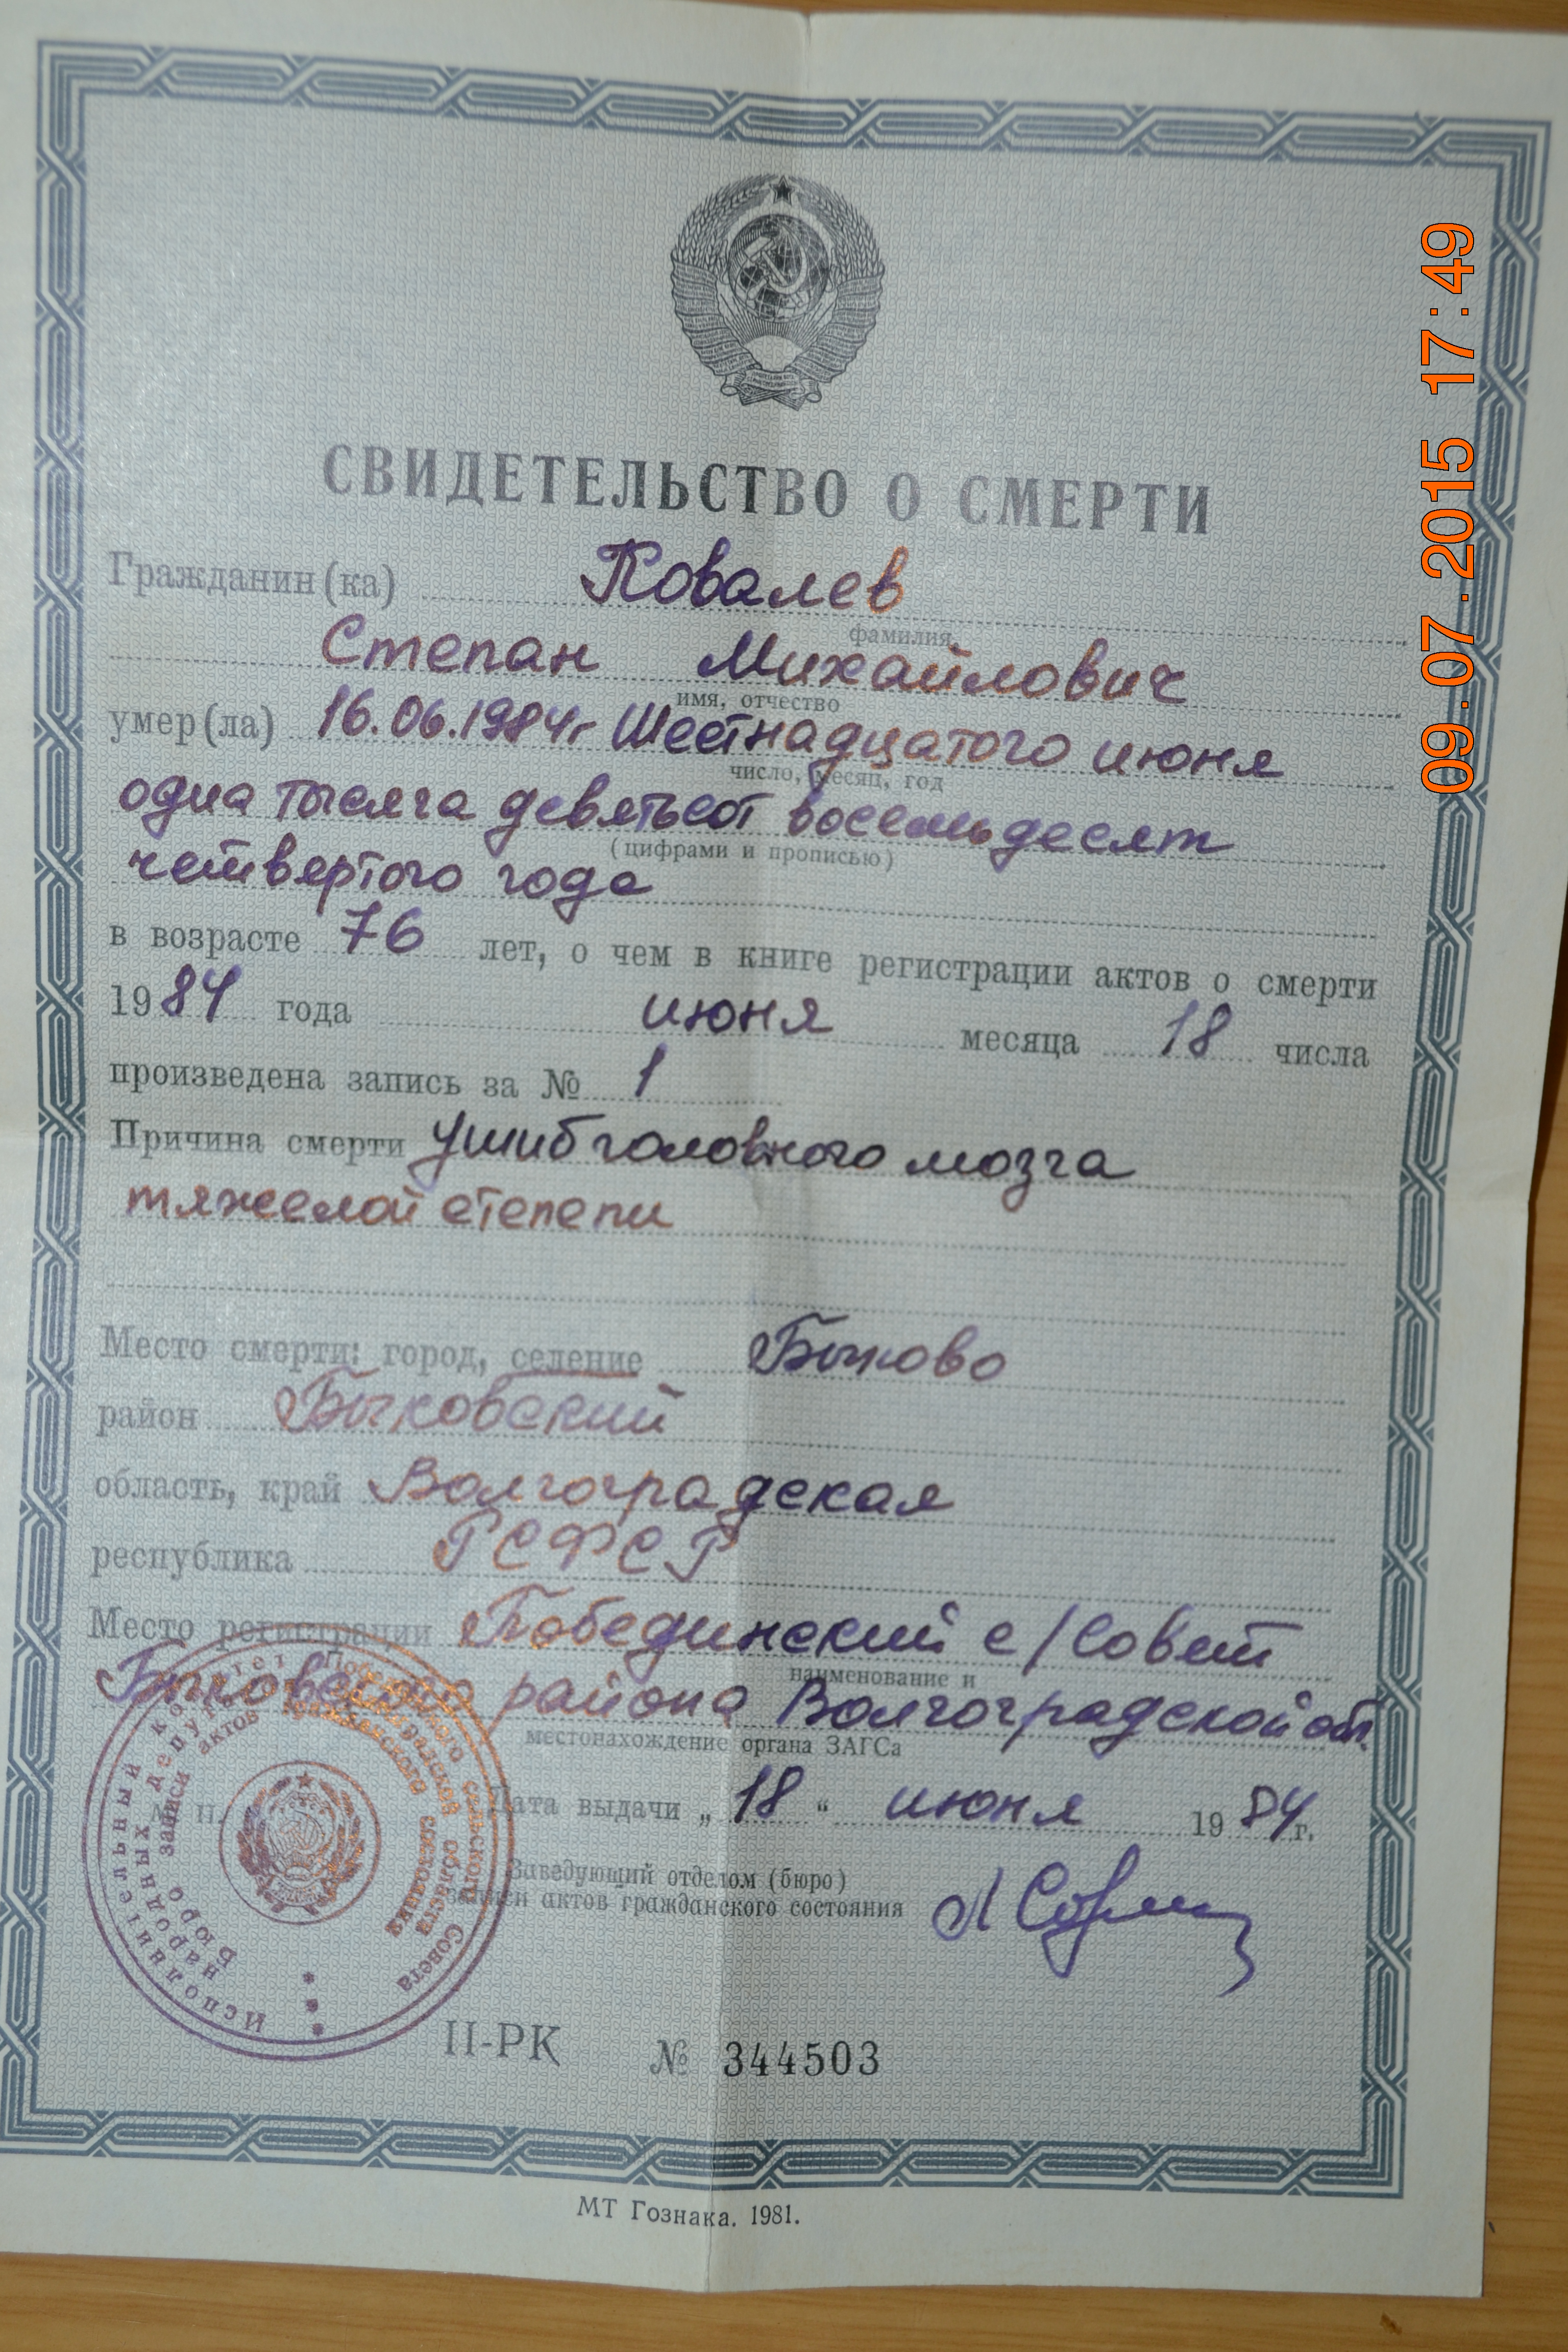 СВИДЕТЕЛЬСТВО О СМЕРТИ
Гражданин(ка) Ковалев
фамилия
Степан Михайлович
имя, отчество
умер(ла) 16.06.1984г Шестнадцатого июня
число, месяц, год
одна тысяча девятьсот восемьдесят
(цифрами и прописью)
четвертого года
в возрасте 76 лет, о чем в книге регистрации актов о смерти
1984 года июня месяца 18 числа
произведена запись за № 1
Причина смерти Ушиб головного мозга
тяжелой степени
Место смерти: город, селение Быково
район Быковский
область, край Волгоградская
республика РСФСР
Место регистрации Побединский с/Совет
наименование и
Быковского района Волгоградской обл.
местонахождение органа ЗАГСа
М. П.
Дата выдачи „ 18 “ июня 1984г.
Заведующий отделом (бюро)
записи актов гражданского состояния
Исполнительный комитет сельского Совета
народных депутатов Волгоградской области
Бюро записи актов гражданского состояния
II-РК № 344503
МТ Гознака. 1981.
09.07.2015 17:49